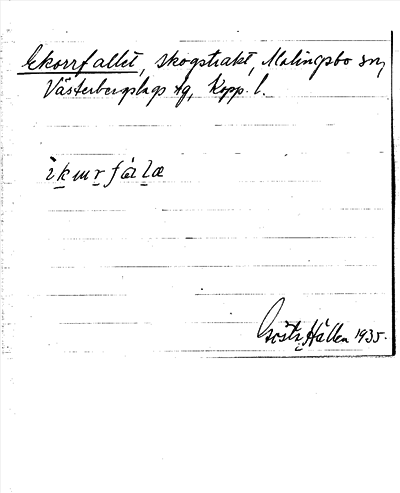 Ekorrfallet, skogstrakt, Malingsbo sn,
Västerbergslags dg, Kopp. l.
Gösta Hallen 1935.